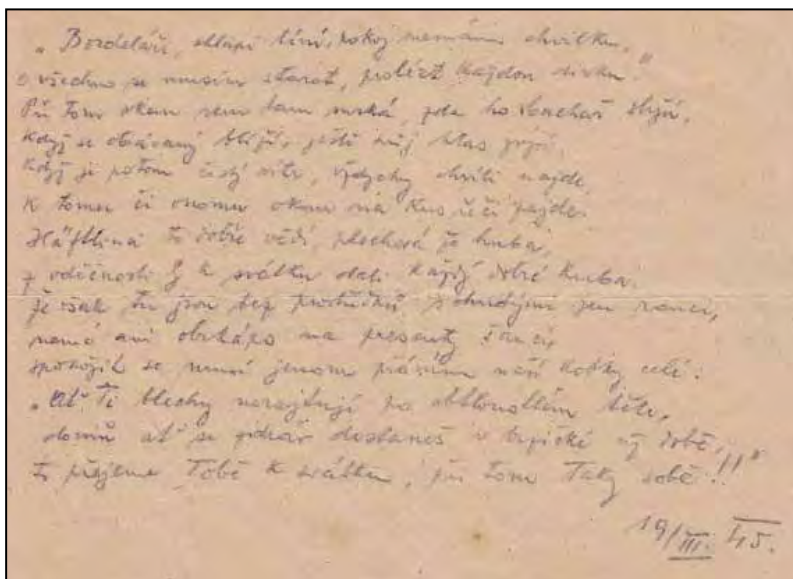 „Bordeláři, chlapi líní, pokoj nemám chvilku,
o všechno se musím starat, prolézt každou dírku."
Při tom okem sem tam mrká, zda ho
Když se obávaný blíží, ještě můj hlas
Když je potom čistý vítr, chvíli najde,
k tomu či onomu oknu na kus řeči zajde.
Häftlina to dobře vědí, plechová je huba,
z vděčnosti by k svátku dali každý dobré
Že však tu jsou bez prostředků s chudými jen ranci,
nemá ani obrkápo na presenty šanci,
spokojit se musí jenom přáním naší kobky celé:
„Ať Ti blechy nerejdují po těle,
domů ať se zdráv dostaneš v brzičké již době,"
to přejeme Tobě k svátku, při tom taky sobě!"
19/III. 45.